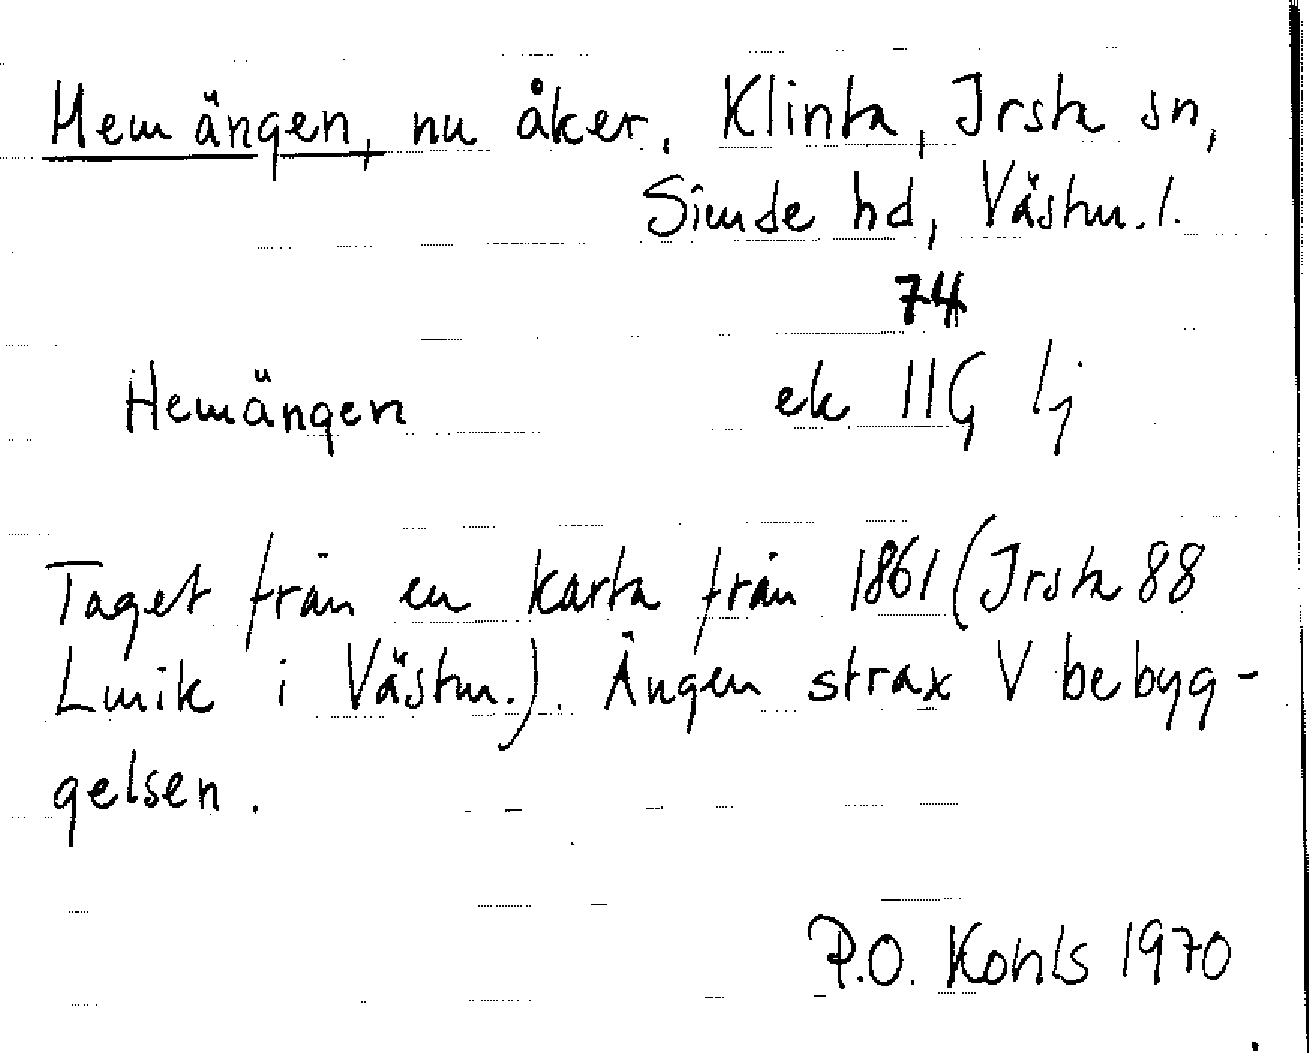 Hemängen, nu åker. Klinta, Irsta sn,
Simde hd, Västm. l.
74
Hemängen ek 11G
Taget från en karta från 1861 (Irsta 88
Lmik i Västm.). Ängen strax V bebyg-
gelsen.
P.O. Kohls 1970